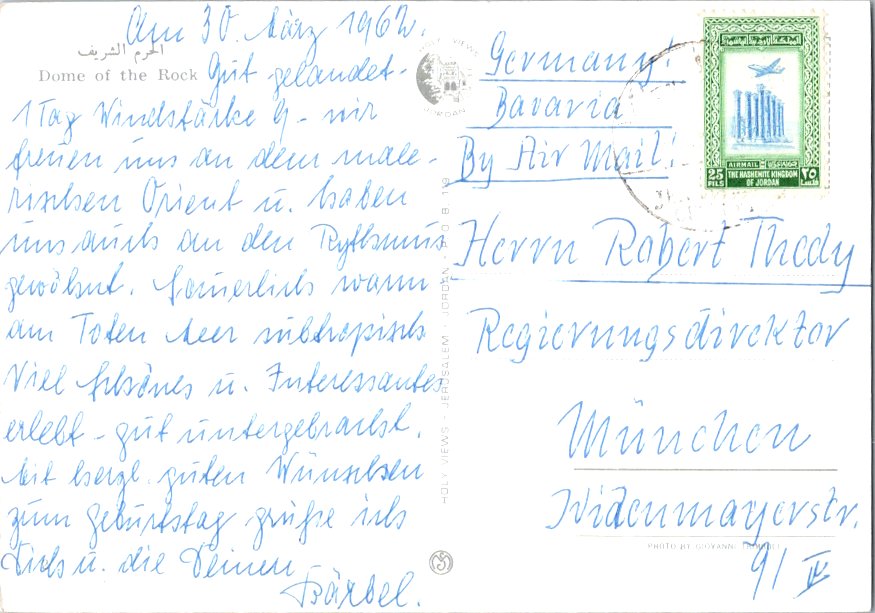 Am 30. März 1962.
الحرم الشريف
Dome of the Rock
Gut gelandet -
1 Tag Windstärke 9 - wir
freuen uns an dem male-
rischen Orient u. haben
uns auch an den Rythmus
gewöhnt. Sommerlich warm
am Toten Meer subtropisch
Viel Schönes u. Interessantes
erlebt - gut untergebracht.
Mit herzl. guten Wünschen
zum Geburtstag grüße ich
Dich u. die Deinen
Bärbel.
HOLY VIEWS
JORDAN
HOLY VIEWS - JERUSALEM - JORDAN - P.O.B. 119
Germany!
Bavaria
By Air Mail!
AIRMAIL
25
FILS
THE HASHEMITE KINGDOM
OF JORDAN
٢٥
فلسا
Herrn Robert Thedy
Regierungsdirektor
München
Widenmayerstr.
PHOTO BY GIOVANNI
91 IV